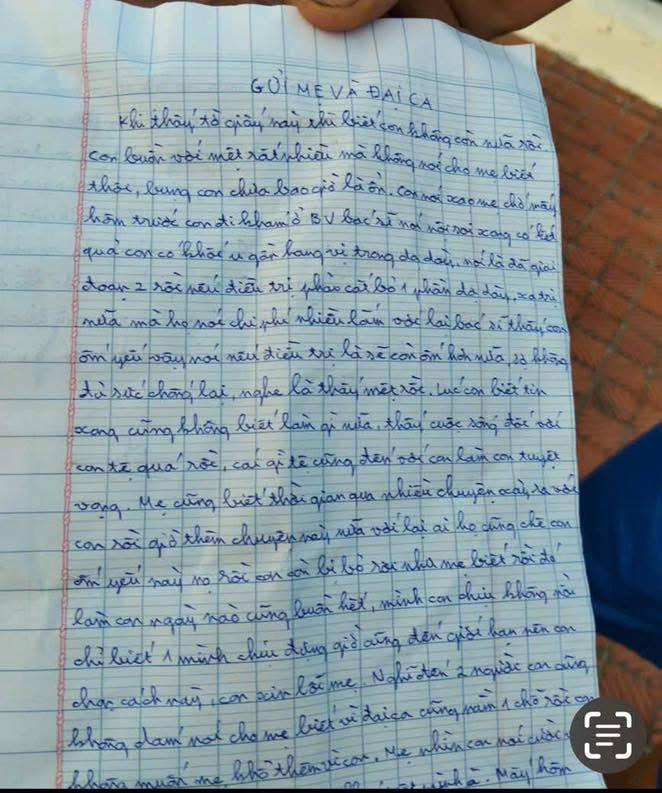 GỬI MẸ VÀ ĐẠI CA
Khi thấy tờ giấy này thì biết con không còn nữa rồi
con buồn với mệt rất nhiều mà không nói cho mẹ biết
thôi, bụng con chưa bao giờ là ổn. Con nói xạo mẹ chớ mấy
hôm trước con đi khám ở BV bác sĩ nói nội soi xong có kết
quả con có khối u gần hang vị trong dạ dày, nói là đã giai
đoạn 2 rồi nếu điều trị phải cắt bỏ 1 phần dạ dày, xạ trị
nữa mà họ nói chi phí nhiều lắm với lại bác sĩ thấy con
ốm yếu vậy nói nếu điều trị là sẽ còn ốm hơn nữa, sợ không
đủ sức chống lại, nghe là thấy mệt rồi. Lúc con biết tin
xong cũng không biết làm gì nữa, thấy cuộc sống đối với
con tệ quá rồi, cái gì tệ cũng đến với con làm con tuyệt
vọng. Mẹ cũng biết thời gian qua nhiều chuyện xảy ra với
con rồi giờ thêm chuyện này nữa với lại ai họ cũng chê con
ốm yếu này nọ rồi con còn bị bỏ rơi nha mẹ biết rồi đó
làm con ngày nào cũng buồn hết, mình con chịu không nổi
chỉ biết 1 mình chịu đựng giờ cũng đến giới hạn nên con
chọn cách này, con xin lỗi mẹ. Nghĩ đến 2 người con cũng
không dám nói cho mẹ biết vì đại ca cũng nằm 1 chỗ rồi con
không muốn mẹ khổ thêm vì con. Mẹ nhìn con nói cười
Mấy hôm